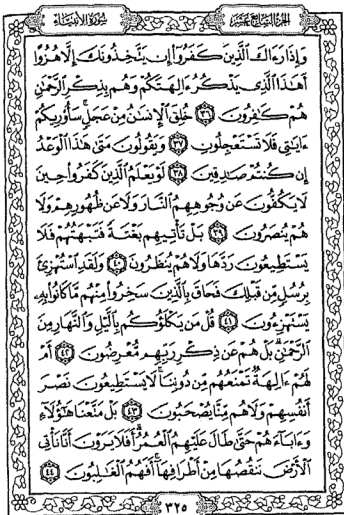 الجزء السابع عشر
سورة الأنبياء
وَإِذَا رَءَاكَ ٱلَّذِينَ كَفَرُوٓا۟ إِن يَتَّخِذُونَكَ إِلَّا هُزُوًا
أَهَٰذَا ٱلَّذِى يَذْكُرُ ءَالِهَتَكُمْ وَهُم بِذِكْرِ ٱلرَّحْمَٰنِ
هُمْ كَٰفِرُونَ ٣٦ خُلِقَ ٱلْإِنسَٰنُ مِنْ عَجَلٍ سَأُو۟رِيكُمْ
ءَايَٰتِى فَلَا تَسْتَعْجِلُونِ ٣٧ وَيَقُولُونَ مَتَىٰ هَٰذَا ٱلْوَعْدُ
إِن كُنتُمْ صَٰدِقِينَ ٣٨ لَوْ يَعْلَمُ ٱلَّذِينَ كَفَرُوا۟ حِينَ
لَا يَكُفُّونَ عَن وُجُوهِهِمُ ٱلنَّارَ وَلَا عَن ظُهُورِهِمْ وَلَا
هُمْ يُنصَرُونَ ٣٩ بَلْ تَأْتِيهِم بَغْتَةً فَتَبْهَتُهُمْ فَلَا
يَسْتَطِيعُونَ رَدَّهَا وَلَا هُمْ يُنظَرُونَ ٤٠ وَلَقَدِ ٱسْتُهْزِئَ
بِرُسُلٍ مِّن قَبْلِكَ فَحَاقَ بِٱلَّذِينَ سَخِرُوا۟ مِنْهُم مَّا كَانُوا۟ بِهِۦ
يَسْتَهْزِءُونَ ٤١ قُلْ مَن يَكْلَؤُكُم بِٱلَّيْلِ وَٱلنَّهَارِ مِنَ
ٱلرَّحْمَٰنِ بَلْ هُمْ عَن ذِكْرِ رَبِّهِم مُّعْرِضُونَ ٤٢ أَمْ
لَهُمْ ءَالِهَةٌ تَمْنَعُهُم مِّن دُونِنَا لَا يَسْتَطِيعُونَ نَصْرَ
أَنفُسِهِمْ وَلَا هُم مِّنَّا يُصْحَبُونَ ٤٣ بَلْ مَتَّعْنَا هَٰٓؤُلَآءِ
وَءَابَآءَهُمْ حَتَّىٰ طَالَ عَلَيْهِمُ ٱلْعُمُرُ أَفَلَا يَرَوْنَ أَنَّا نَأْتِى
ٱلْأَرْضَ نَنقُصُهَا مِنْ أَطْرَافِهَآ أَفَهُمُ ٱلْغَٰلِبُونَ ٤٤
٣٢٥